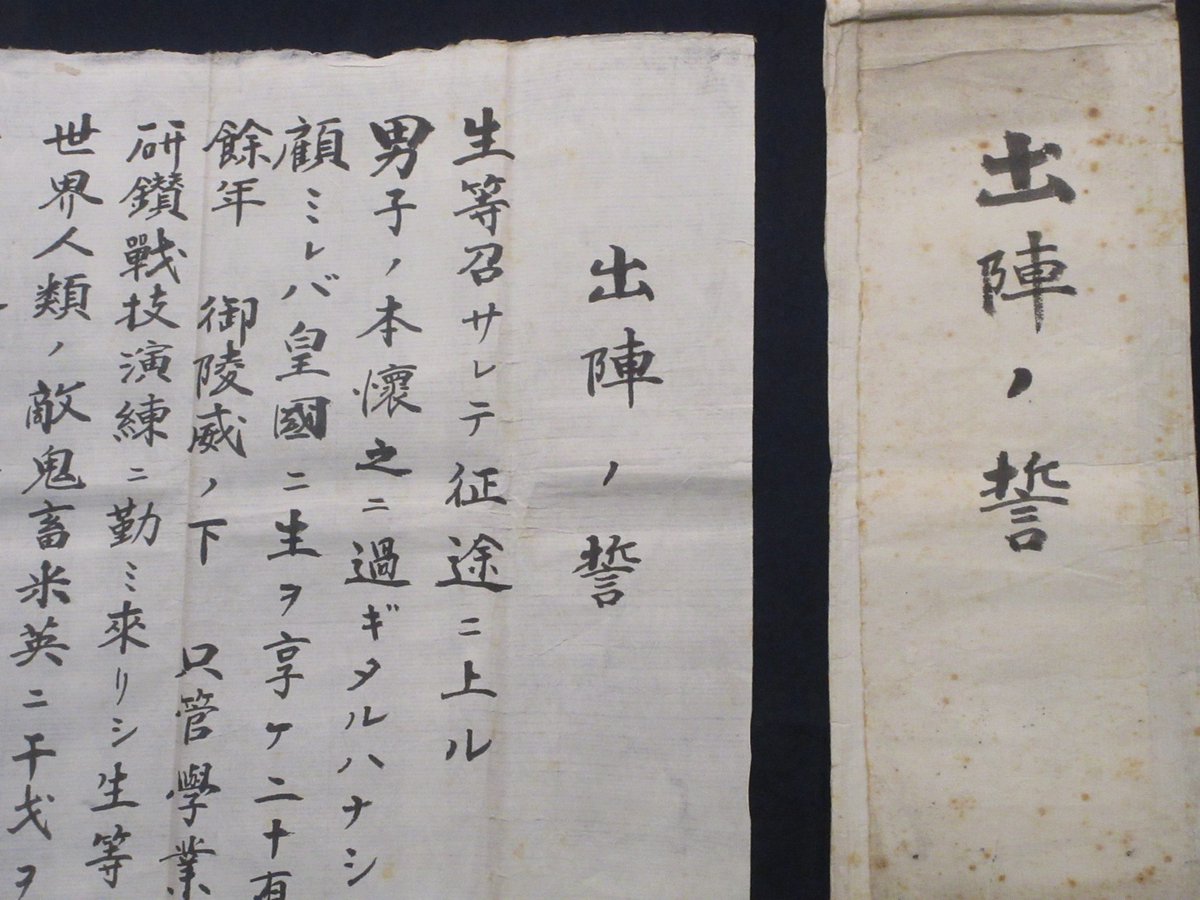 出陣ノ誓
出陣ノ誓
生等召サレテ征途ニ上ル
男子ノ本懷之ニ過ギタルハナシ
顧ミレバ皇國ニ生ヲ享ケ二十有
餘年　御陵威ノ下　只管學業
研鑽戰技演練ニ勤ミ來リシ生等
世界人類ノ敵鬼畜米英ニ干戈ヲ